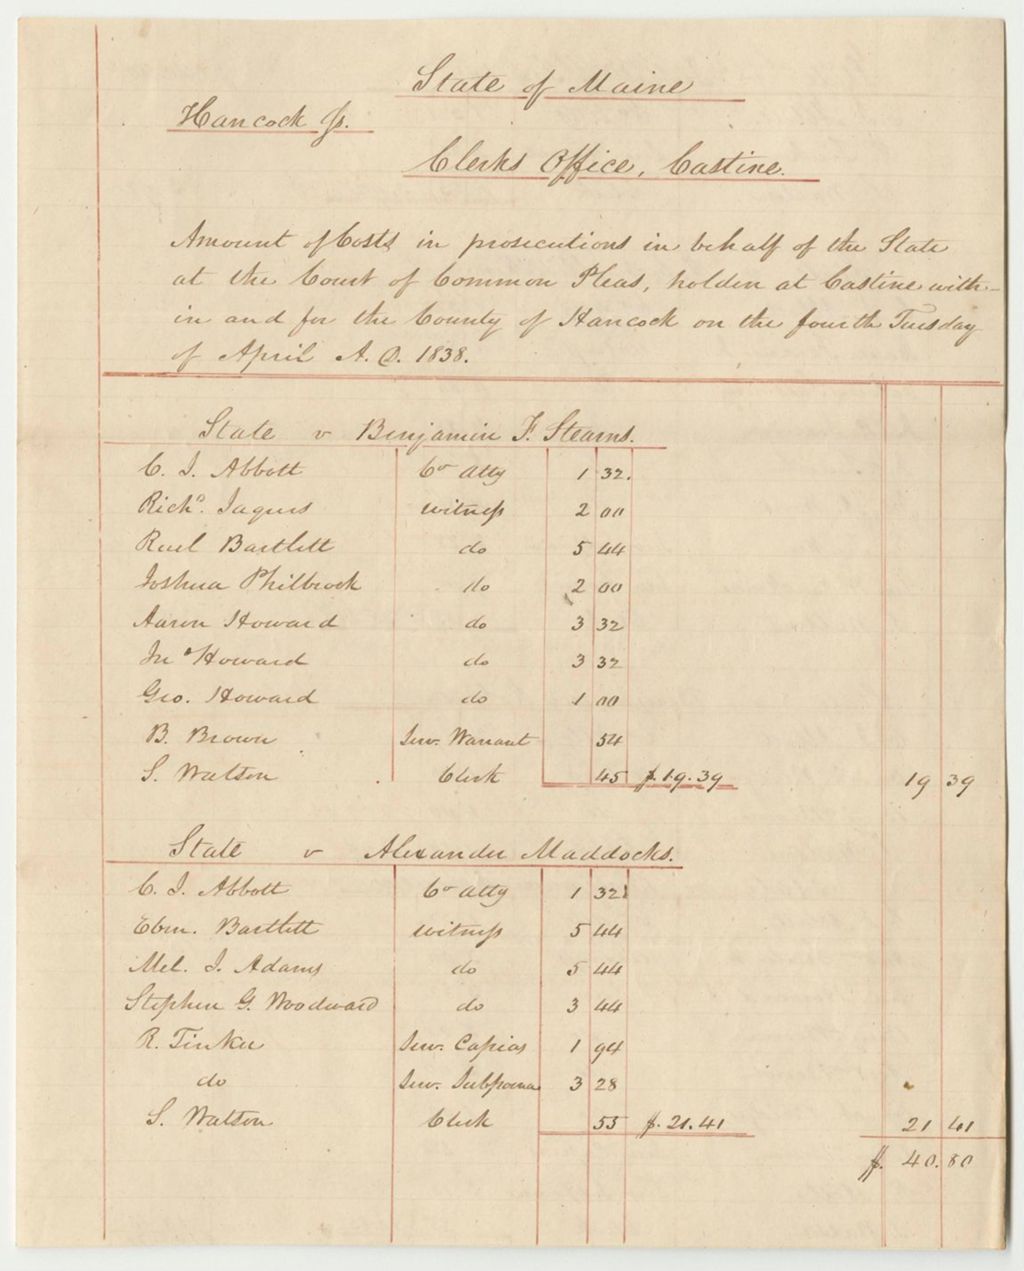 State of Maine
Hancock ss.
Clerks Office, Castine.
Amount of Costs in prosecutions in behalf of the State
at the Court of Common Pleas, holden at Castine with-
in and for the County of Hancock on the fourth Tuesday
of April A. D. 1838.
State v Benjamin F. Stearns.
C. J. Abbott Co Atty 1 32.
Richd. Jaques witness 2 00
Ruel Bartlett do 5 44
Joshua Philbrook do 2 00
Aaron Howard do 3 32
Jno Howard do 3 32
Geo. Howard do 1 00
B. Brown Serv. Warrant 54
S. Watson Clerk 45 $.19.39 19 39
State v Alexander Maddocks.
C. J. Abbott Co Atty 1 32
Eben. Bartlett witness 5 44
Mel. J. Adams do 5 44
Stephen G. Woodward do 3 44
R. Tinker Serv. Capias 1 94
do Serv. Subpoena 3 28
S. Watson Clerk 55 $.21.41 21 41
$. 40.80